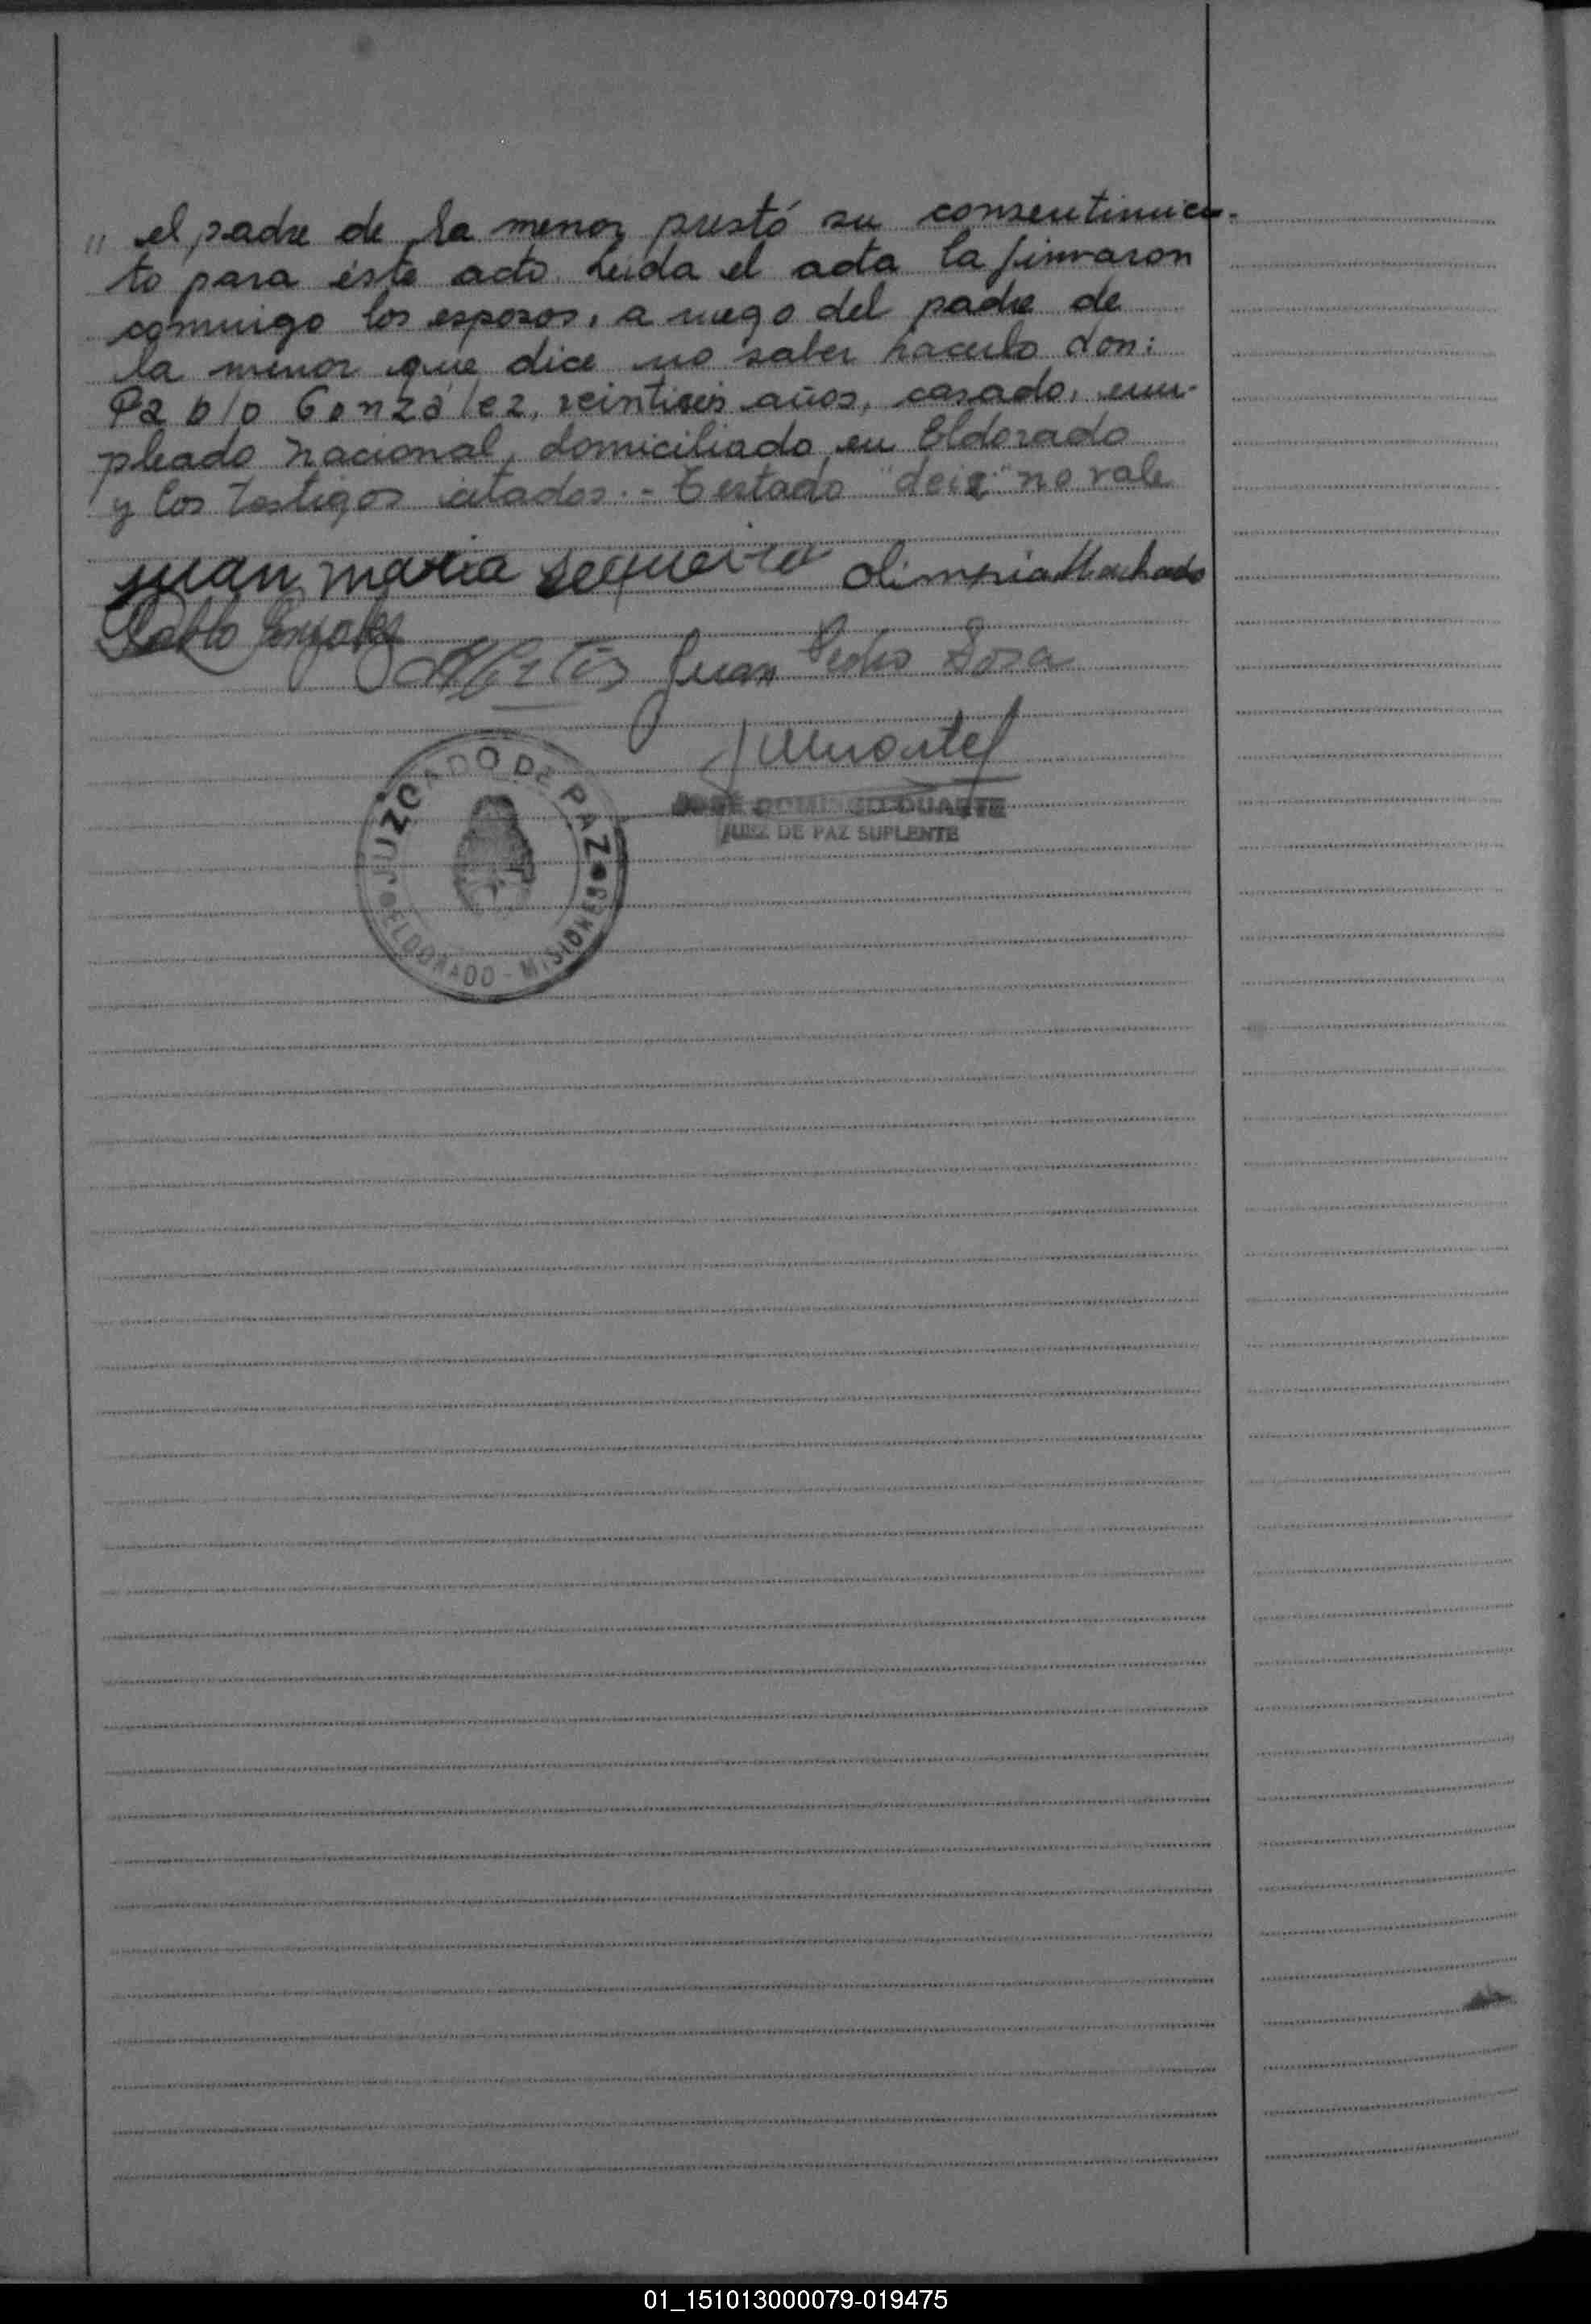 " el padre de la menor prestó su consentimien-
to para éste acto. Leida el acta la firmaron
conmigo los esposos, a ruego del padre de
la menor que dice no saber hacerlo don:
Pablo González, veintiseis años, casado, em-
pleado nacional, domiciliado en Eldorado
y los testigos citados.- Testado "deiz" no vale
Juan maria Sequeira Olimpia Machado
Pablo Gonzalez
Juan Pedro Sosa
JUZGADO DE PAZ
ELDORADO - MISIONES
JOSÉ DOMINGO DUARTE
JUEZ DE PAZ SUPLENTE
01_151013000079-019475